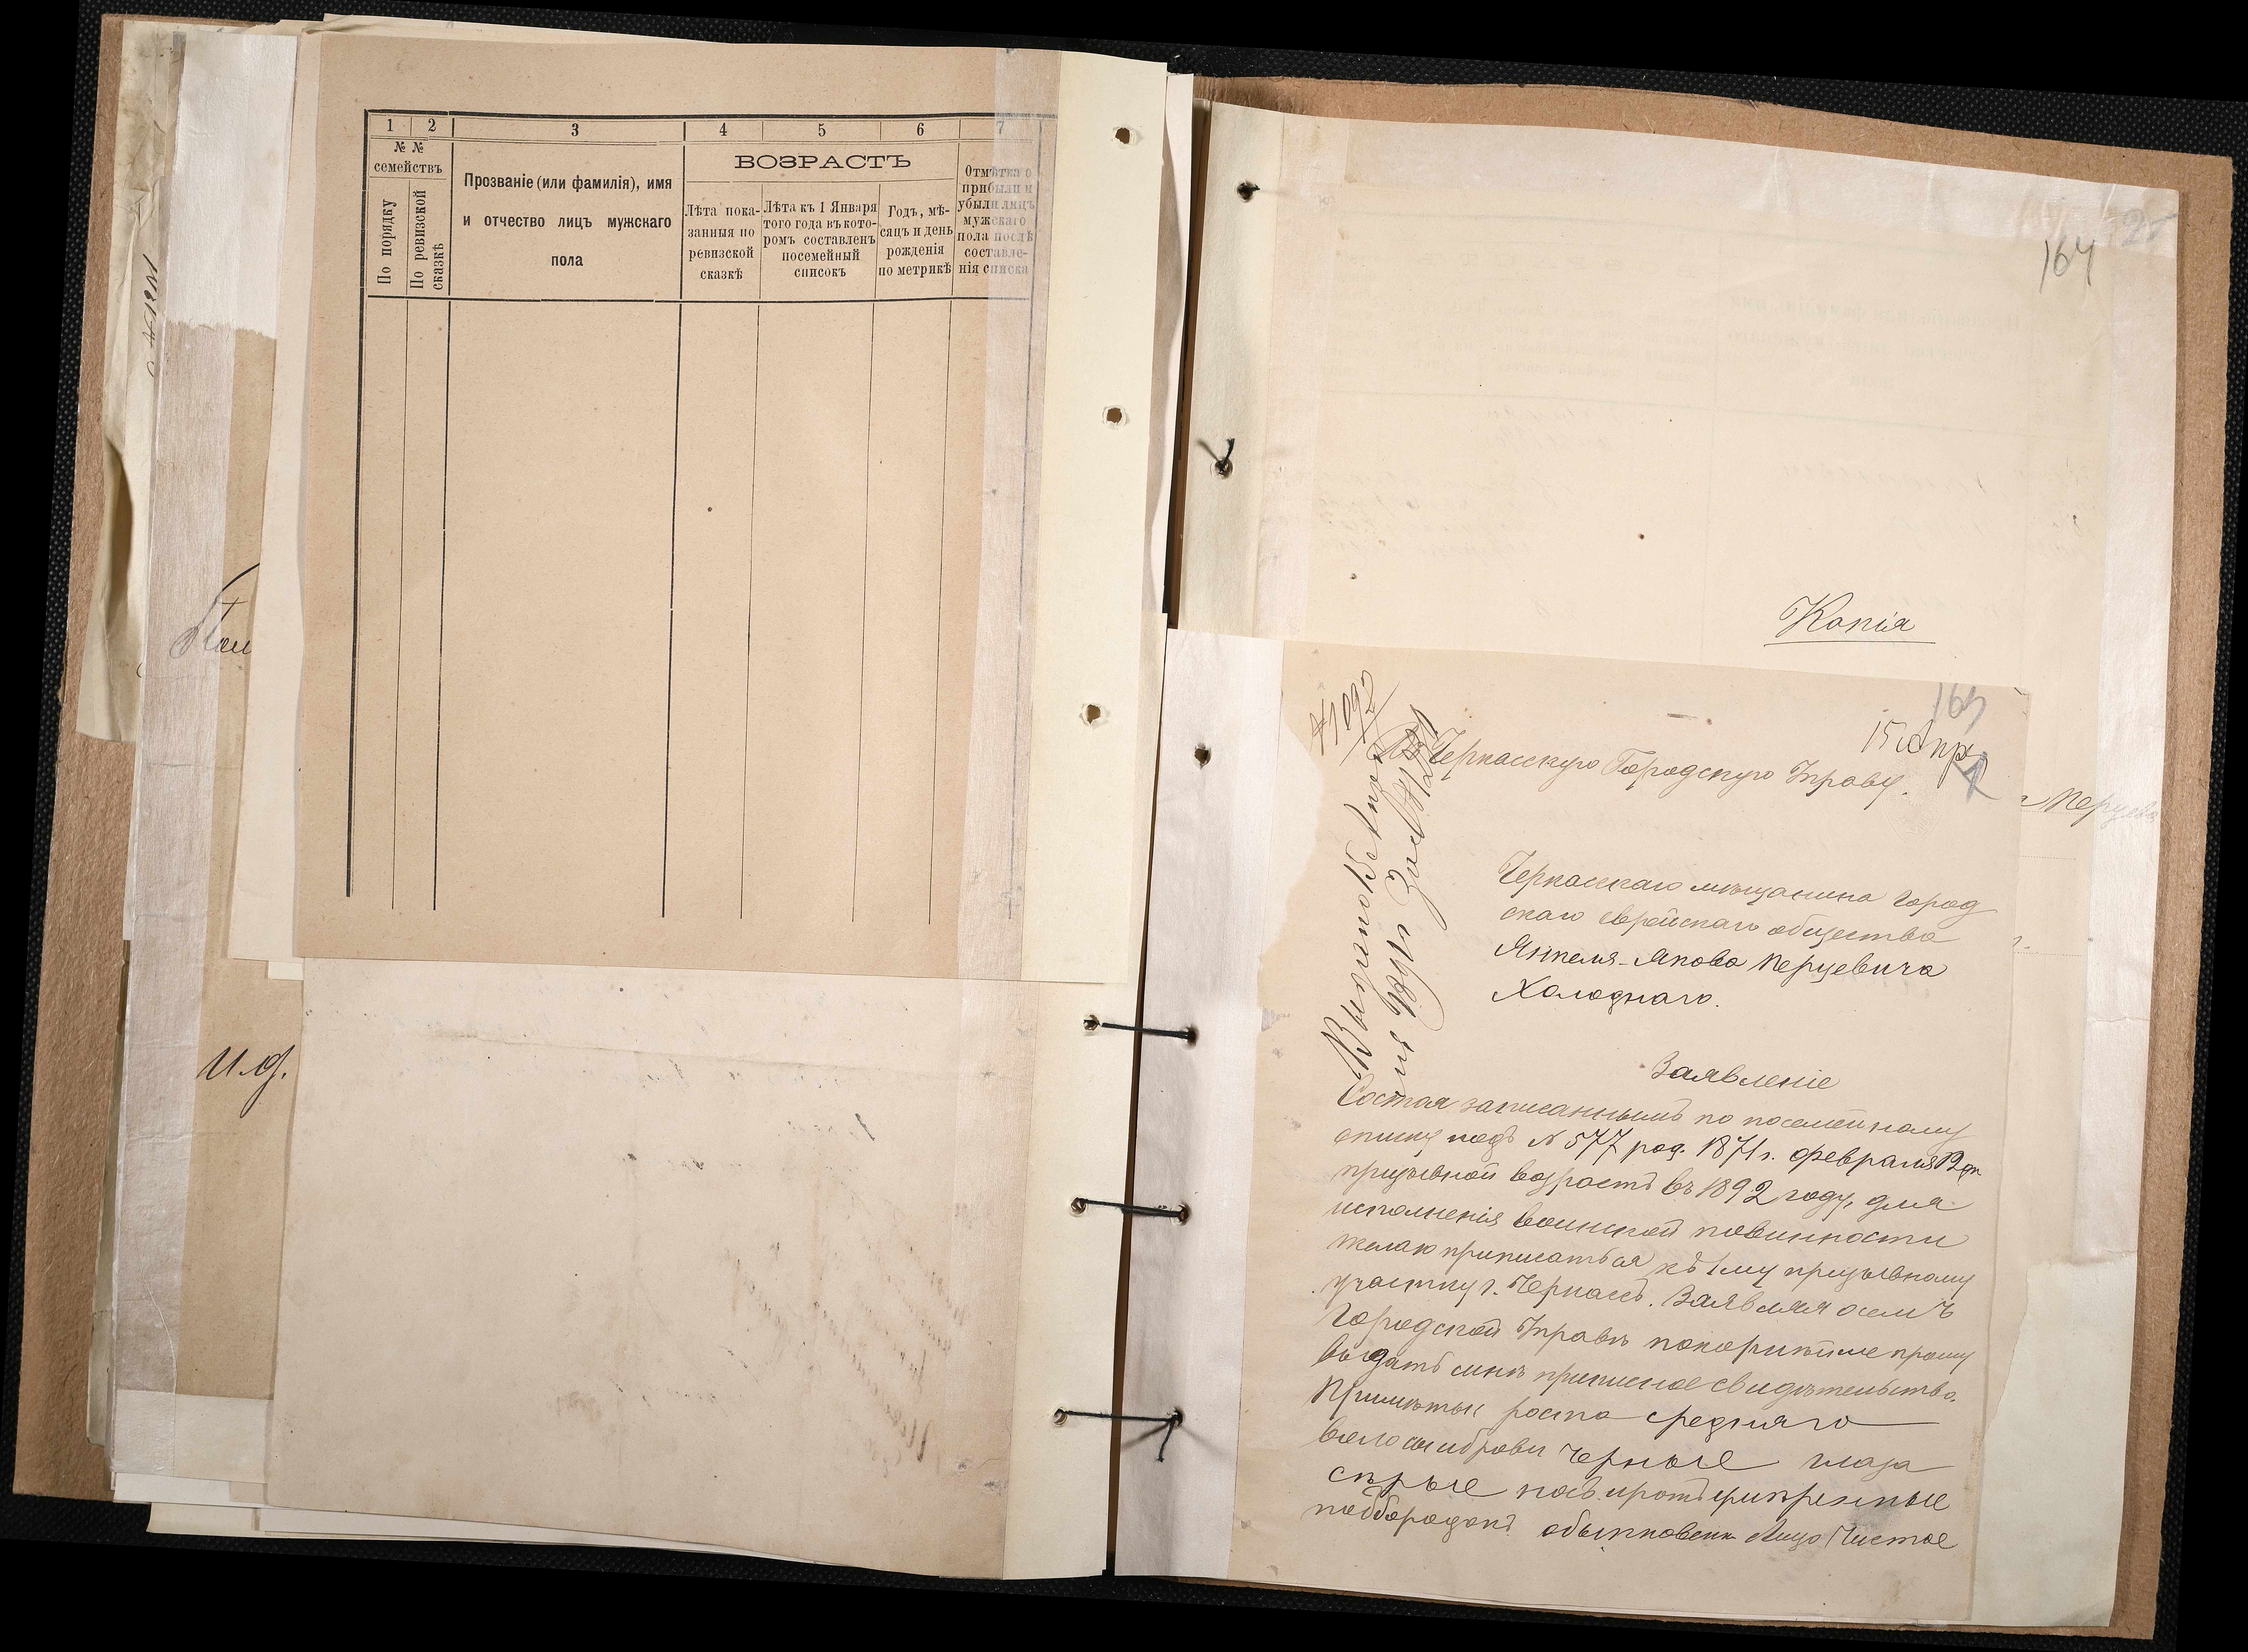 1 2 3 4 5 6 7
№ №
семействъ
По порядку
По ревизской
сказкѣ
Прозваніе (или фамилія), имя
и отчество лицъ мужскаго
пола
ВОЗРАСТЪ
Лѣта пока-
занныя по
ревизской
сказкѣ
Лѣта къ 1 Января
того года въ кото-
ромъ составленъ
посемейный
списокъ
Годъ, мѣ-
сяцъ и день
рожденія
по метрикѣ
Отмѣтка о
прибыли и
убыли лицъ
мужскаго
пола послѣ
составле-
нія списка
и.д.
164
Копія
165
№ 1092
15 Апр
Въ Черкасскую Городскую Управу.
Перцева
Черкасскаго мѣщанина город
скаго еврейскаго общества
Янкеля-Якова Перцевича
Холоднаго.
Заявленіе
Состоя записаннымъ по посемейному
списку подъ № 577 род. 1871 г. февраля 12 дн
призывной возрастъ въ 1892 году, для
исполненія воинской повинности
желаю приписаться къ 1му призывному
участку г. Черкасъ. Заявляя о семъ
Городской Управѣ покорнѣйше прошу
выдать мнѣ приписное свидѣтельство.
Примѣты: роста средняго
волосы и брови черные глаза
сѣрые носъ и ротъ умѣренные
подбородокъ обыкновенн. Лицо чистое